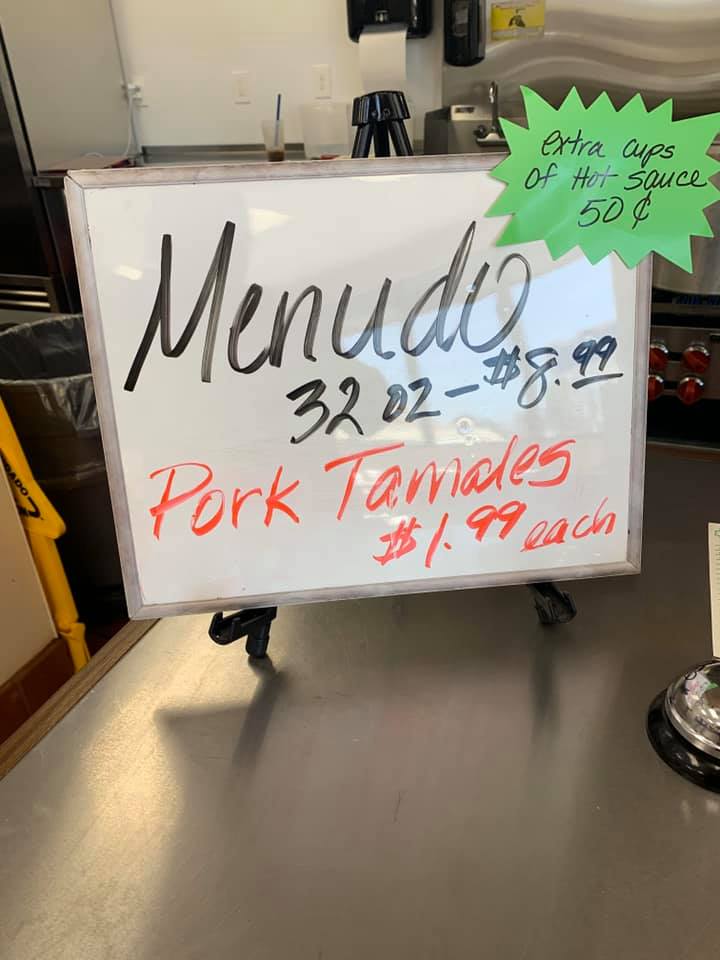 extra cups
of Hot Sauce
50¢
Menudo
32 oz - $8.99
Pork Tamales
$1.99 each